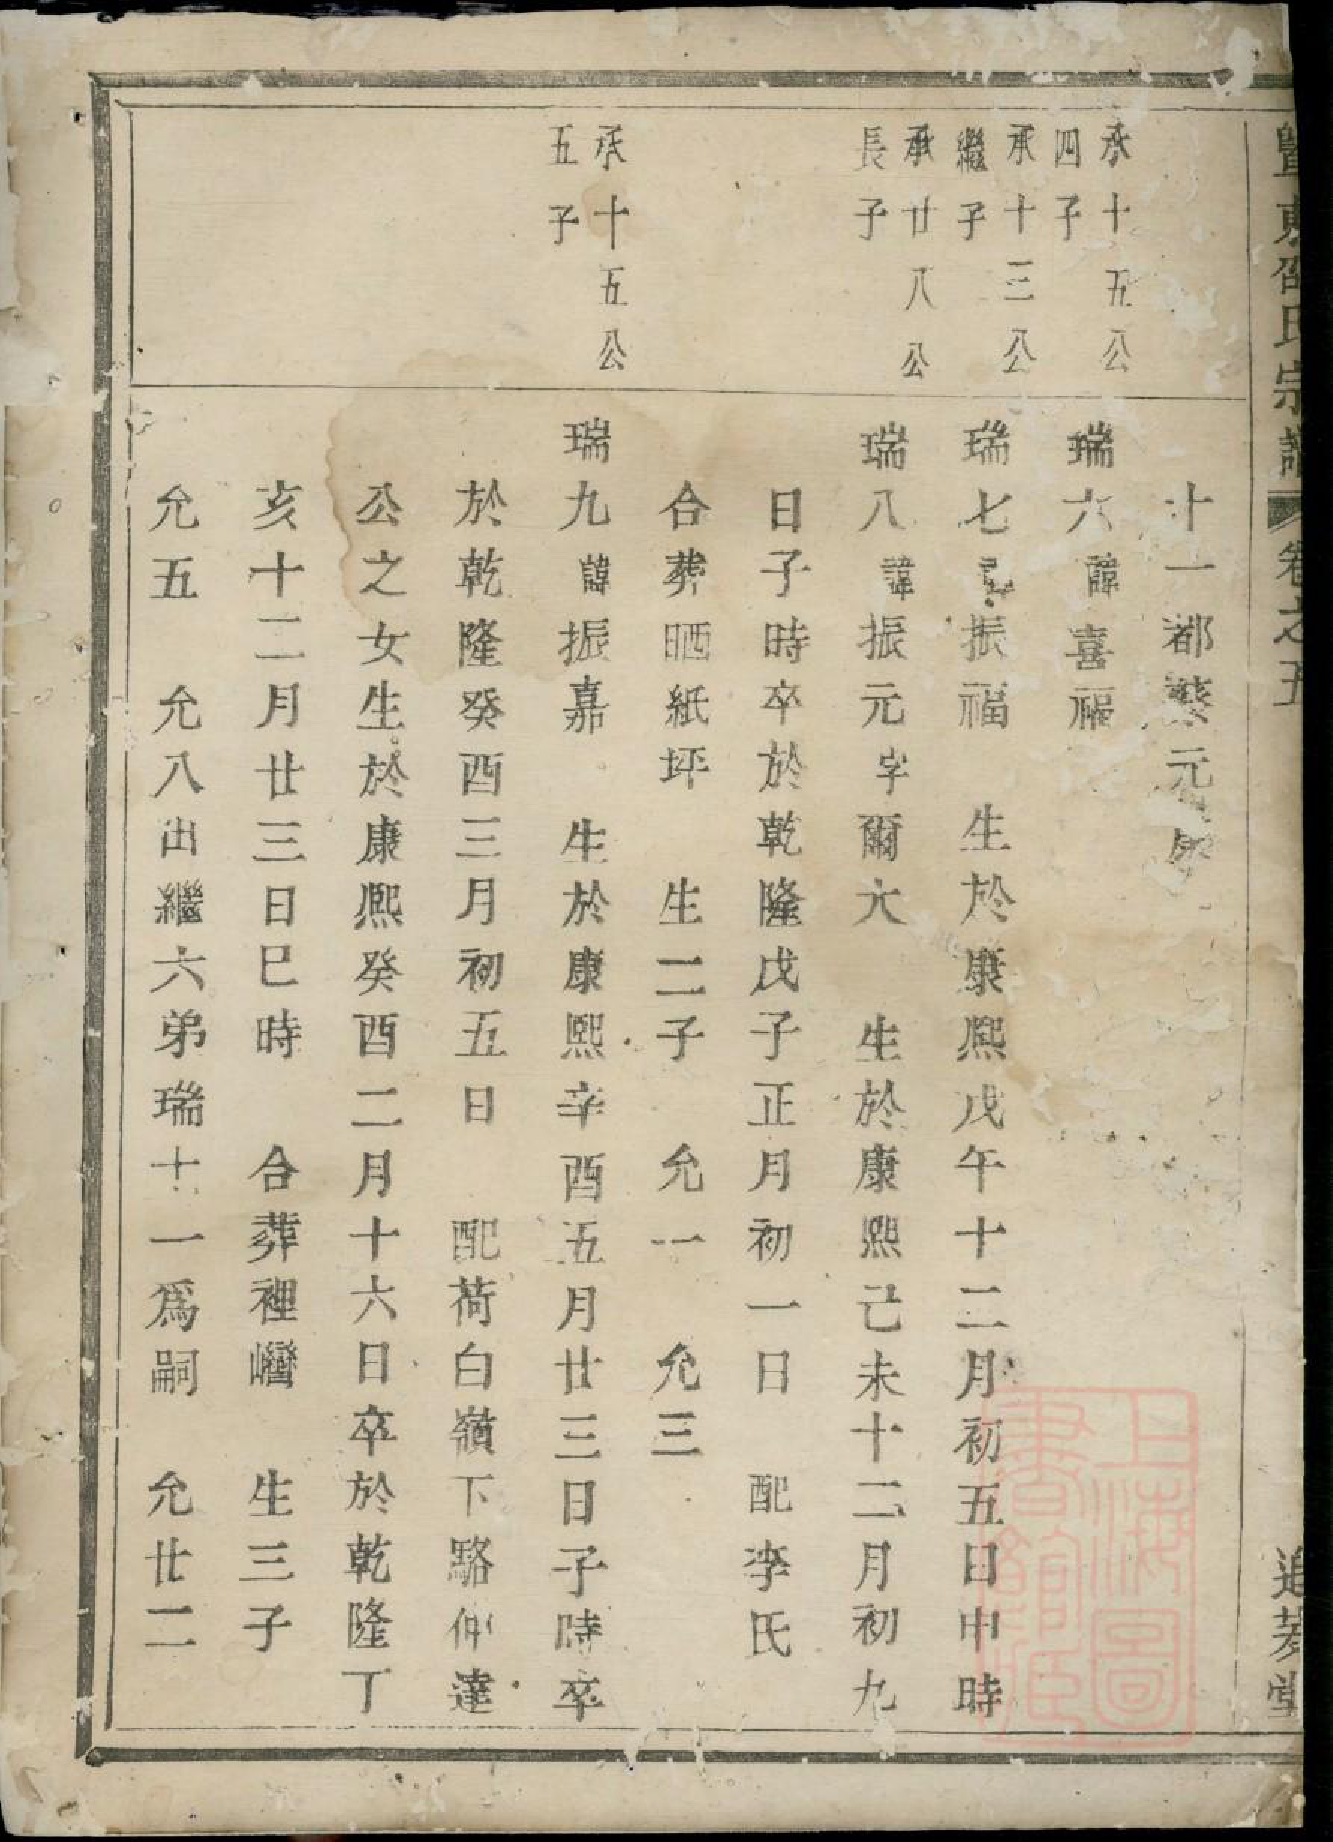 暨東邵氏宗譜 卷之五 追
十一都蔡元
承十五公
四子
瑞六諱喜福
承十三公
繼子
瑞七 振福 生於康熙戊午十二月初五日申時
承廿八公
長子
瑞八諱振元字爾大 生於康熙己未十二月初九
日子時卒於乾隆戊子正月初一日 配李氏
合葬晒紙坪 生二子 允一 允三
承十五公
五子
瑞九諱振嘉 生於康熙辛酉五月廿三日子時卒
於乾隆癸酉三月初五日 配荷白嶺下駱仲達
公之女生於康熙癸酉二月十六日卒於乾隆丁
亥十二月廿三日巳時 合葬裡 生三子
允五 允八出繼六弟瑞十一爲嗣 允廿二
上海圖
書館藏